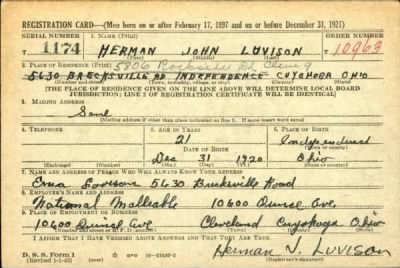 REGISTRATION CARD—(Men born on or after February 17, 1897 and on or before December 31, 1921)
SERIAL NUMBER 1. NAME (Print) ORDER NUMBER
1174 HERMAN JOHN LUVISON 10963
2. PLACE OF RESIDENCE (Print) 5806 Rockside Rd
5630 BRECKSVILLE RD INDEPENDENCE CUYAHOGA OHIO
[THE PLACE OF RESIDENCE GIVEN ON THE LINE ABOVE WILL DETERMINE LOCAL BOARD
JURISDICTION; LINE 2 OF REGISTRATION CERTIFICATE WILL BE IDENTICAL]
3. MAILING ADDRESS
Same
[Mailing address if other than place indicated on line 2. If same insert word same]
4. TELEPHONE 5. AGE IN YEARS 6. PLACE OF BIRTH
21 Independence
DATE OF BIRTH
Dec 31 1920 Ohio
(Exchange) (Number) (Mo.) (Day) (Yr.) (State or country)
7. NAME AND ADDRESS OF PERSON WHO WILL ALWAYS KNOW YOUR ADDRESS
5630 Brecksville Road
8. EMPLOYER'S NAME AND ADDRESS
National Malleable 10600 Quincy Ave.
9. PLACE OF EMPLOYMENT OR BUSINESS
10600 Quincy Ave Cleveland Cuyahoga Ohio
I AFFIRM THAT I HAVE VERIFIED ABOVE ANSWERS AND THAT THEY ARE TRUE.
D. S. S. Form 1
(Revised 1-1-42) Herman J. Luvison